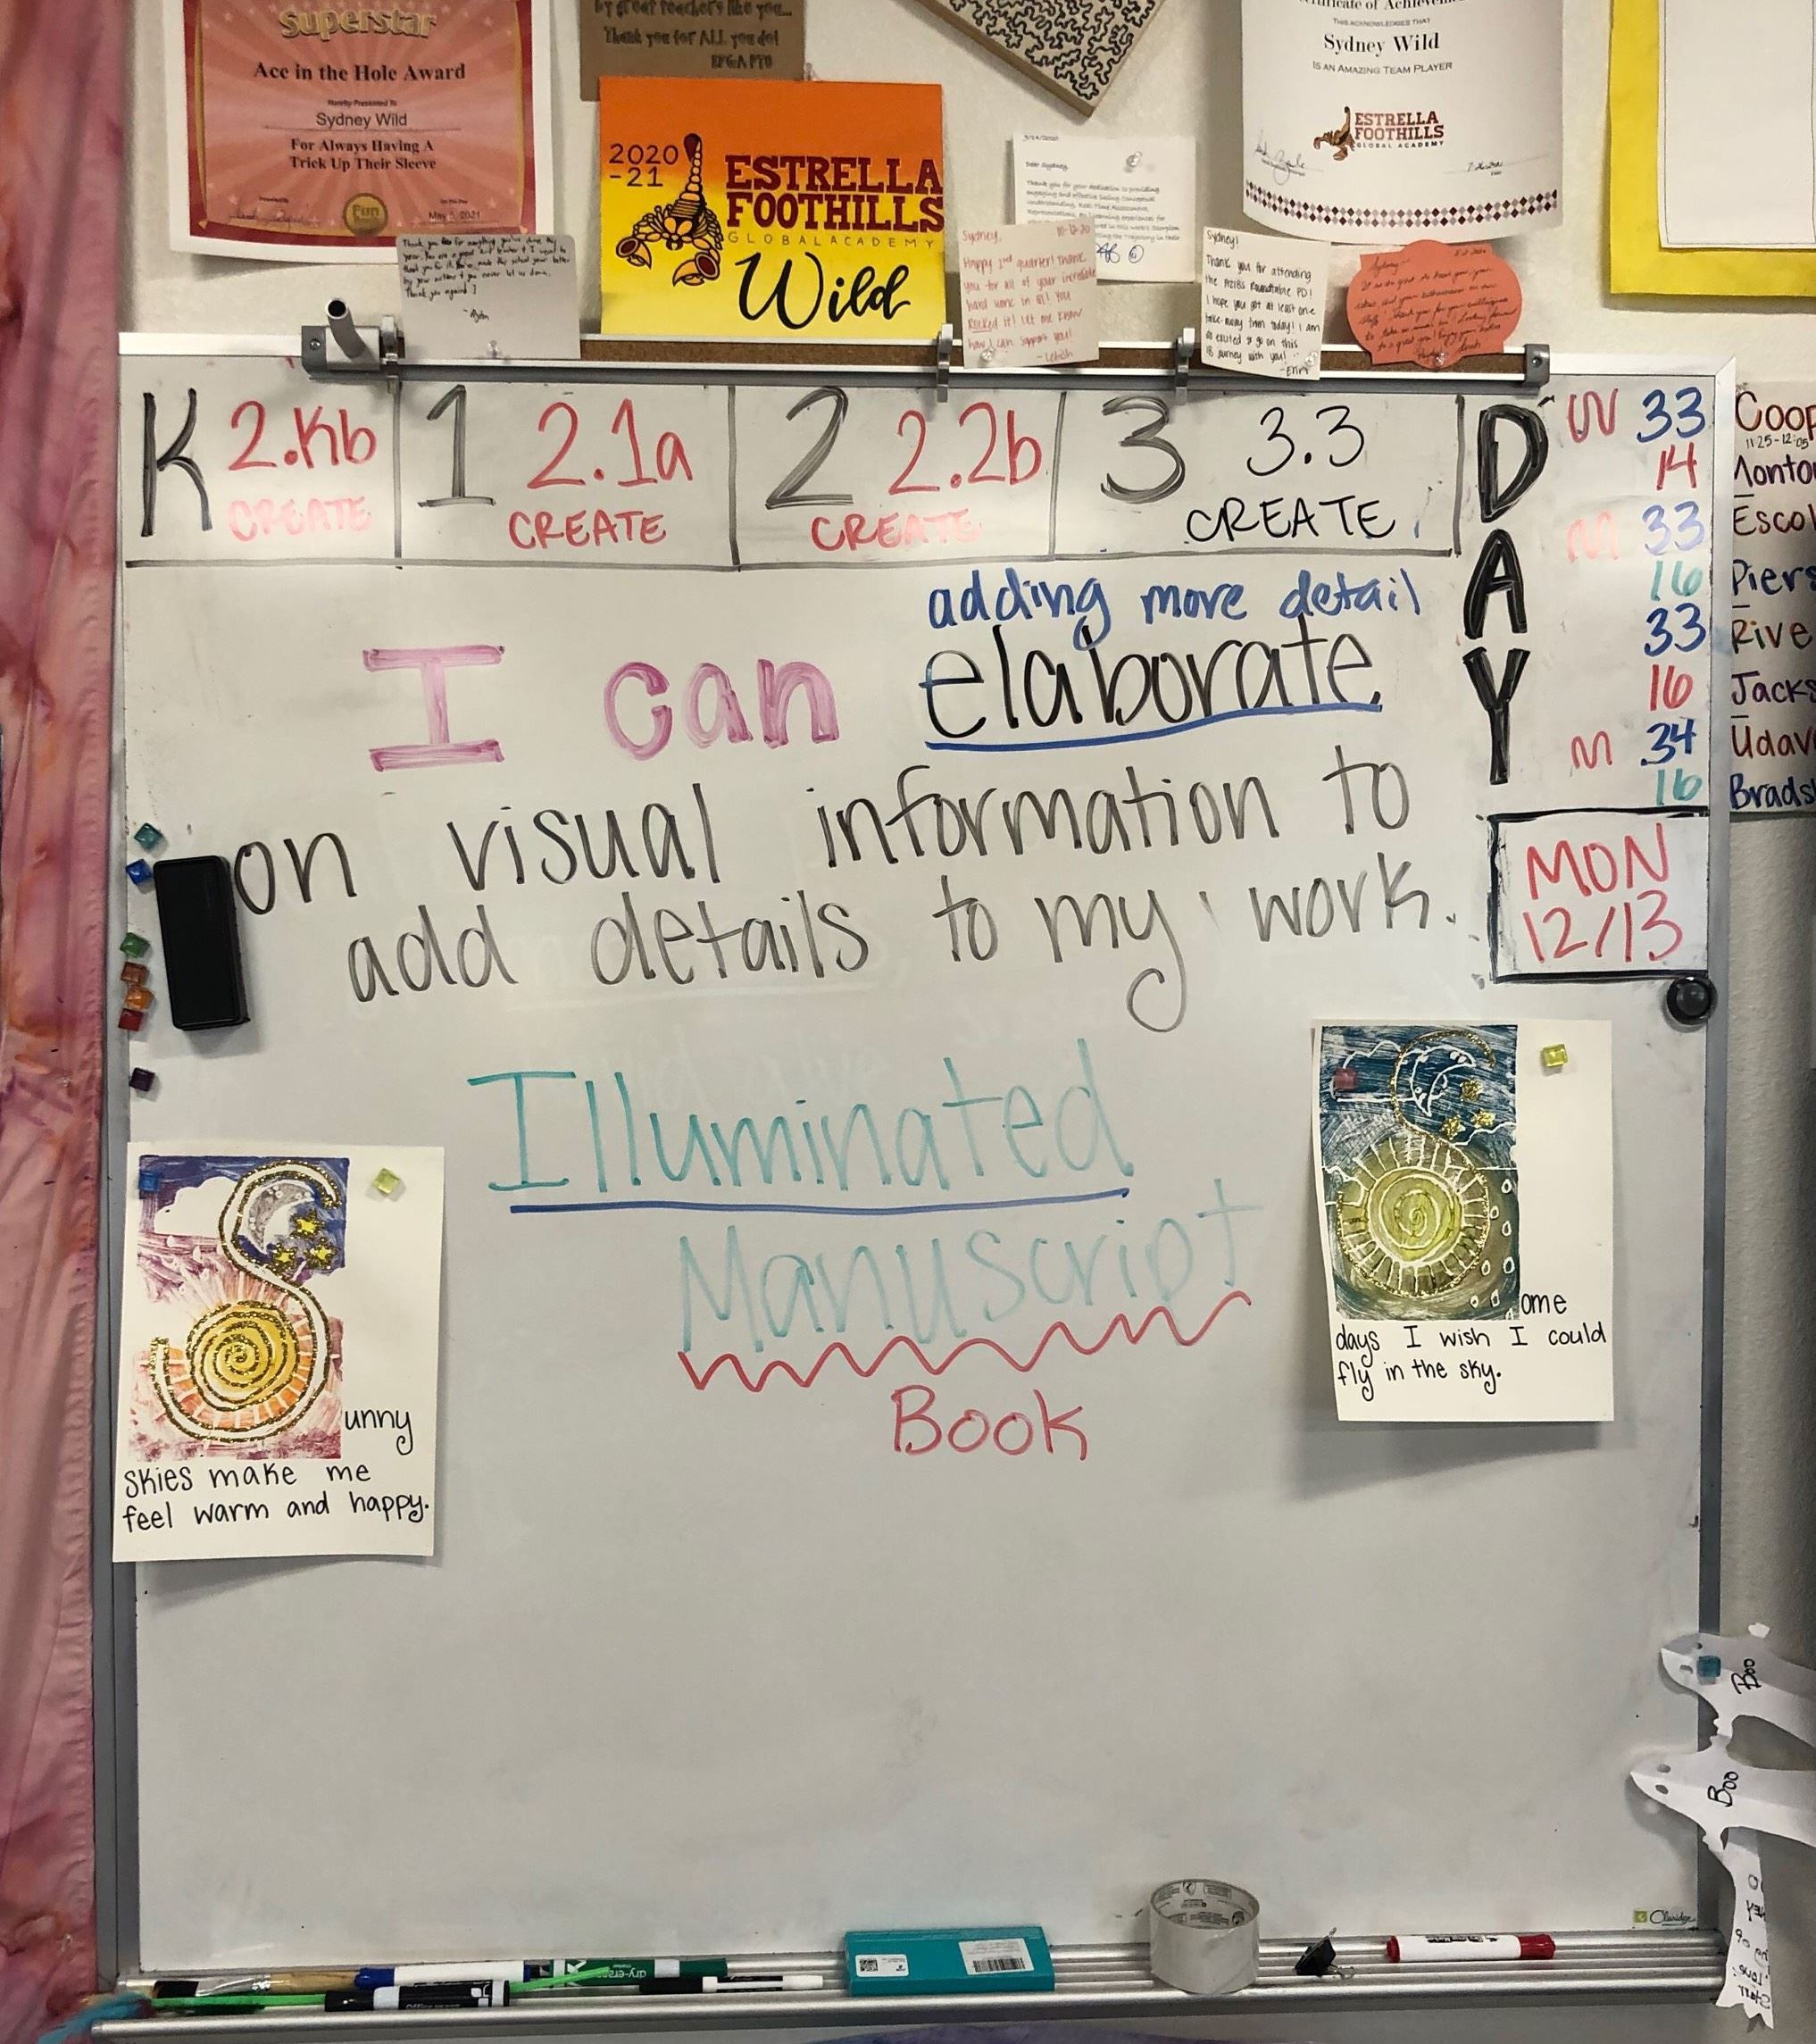 Superstar
Ace in the Hole Award
Hereby Presented To
Sydney Wild
For Always Having A
Trick Up Their Sleeve
Fun
May 5, 2021
by great teachers like you...
Thank you for ALL you do!
EFGA PTO
2020
-21
ESTRELLA
FOOTHILLS
GLOBAL ACADEMY
Wild
THIS ACKNOWLEDGES THAT
Sydney Wild
IS AN AMAZING TEAM PLAYER
ESTRELLA
FOOTHILLS
GLOBAL ACADEMY
Dear Sydney,
Thank you for your dedication to providing
Sydney, 10-12-20
Happy 2nd quarter! Thank
you for all of your incredible
hard work in Q1! You
Rocked it! Let me know
how I can support you!
- Leigh
Sydney!
Thank you for attending
I hope you got at least one
take-away from today! I am
so excited to go on this
IB journey with you!
- Erin
K 2.Kb
CREATE
1 2.1a
CREATE
2 2.2b
CREATE
3 3.3
CREATE
DAY
W 33
14
M 33
16
33
16
M 34
16
Coop
11:25-12:05
Monto
Escol
Piers
Rive
Jacks
Udav
Brads
MON
12/13
adding more detail
I can elaborate
on visual information to
add details to my work.
Illuminated
Manuscript
Book
unny
skies make me
feel warm and happy.
ome
days I wish I could
fly in the sky.
Boo
Boo
Claridge
dry-erase